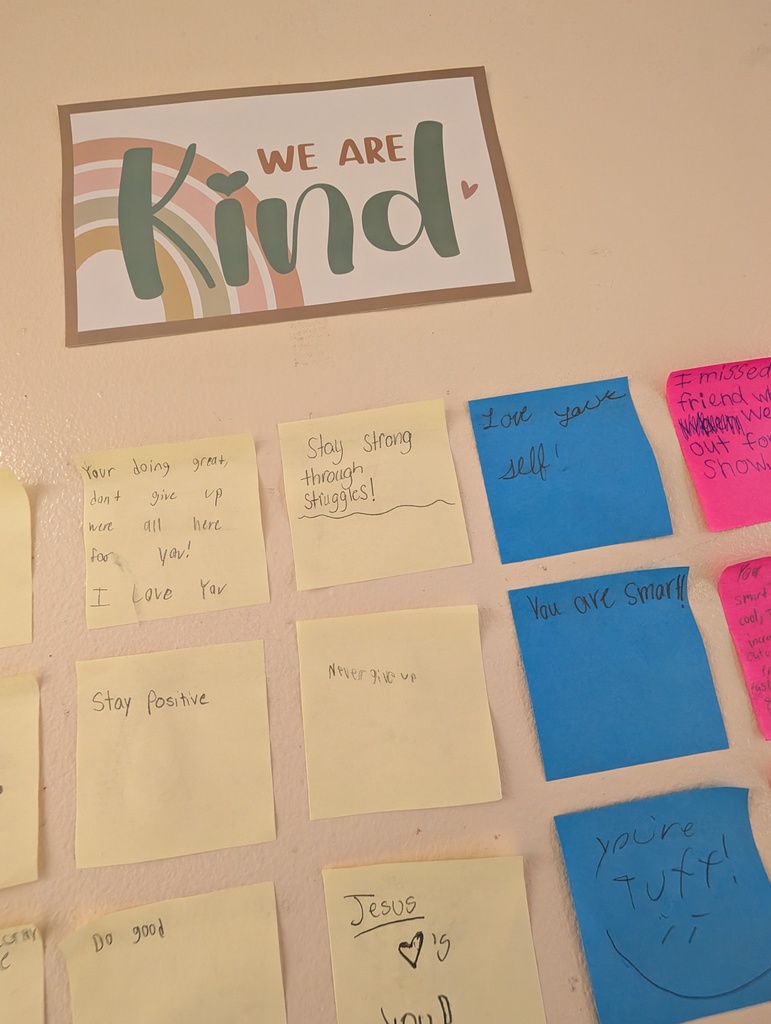 WE ARE
Kind
Your doing great,
don't give up
were all here
for you!
I Love You
Stay Strong
through
struggles!
Love
self!
I missed
friend
we
out for
show
Stay Positive
Never give up
You are smart!!
Your
smart
cool,
Do good
Jesus
♡'s
you!)
you're
Tuff!